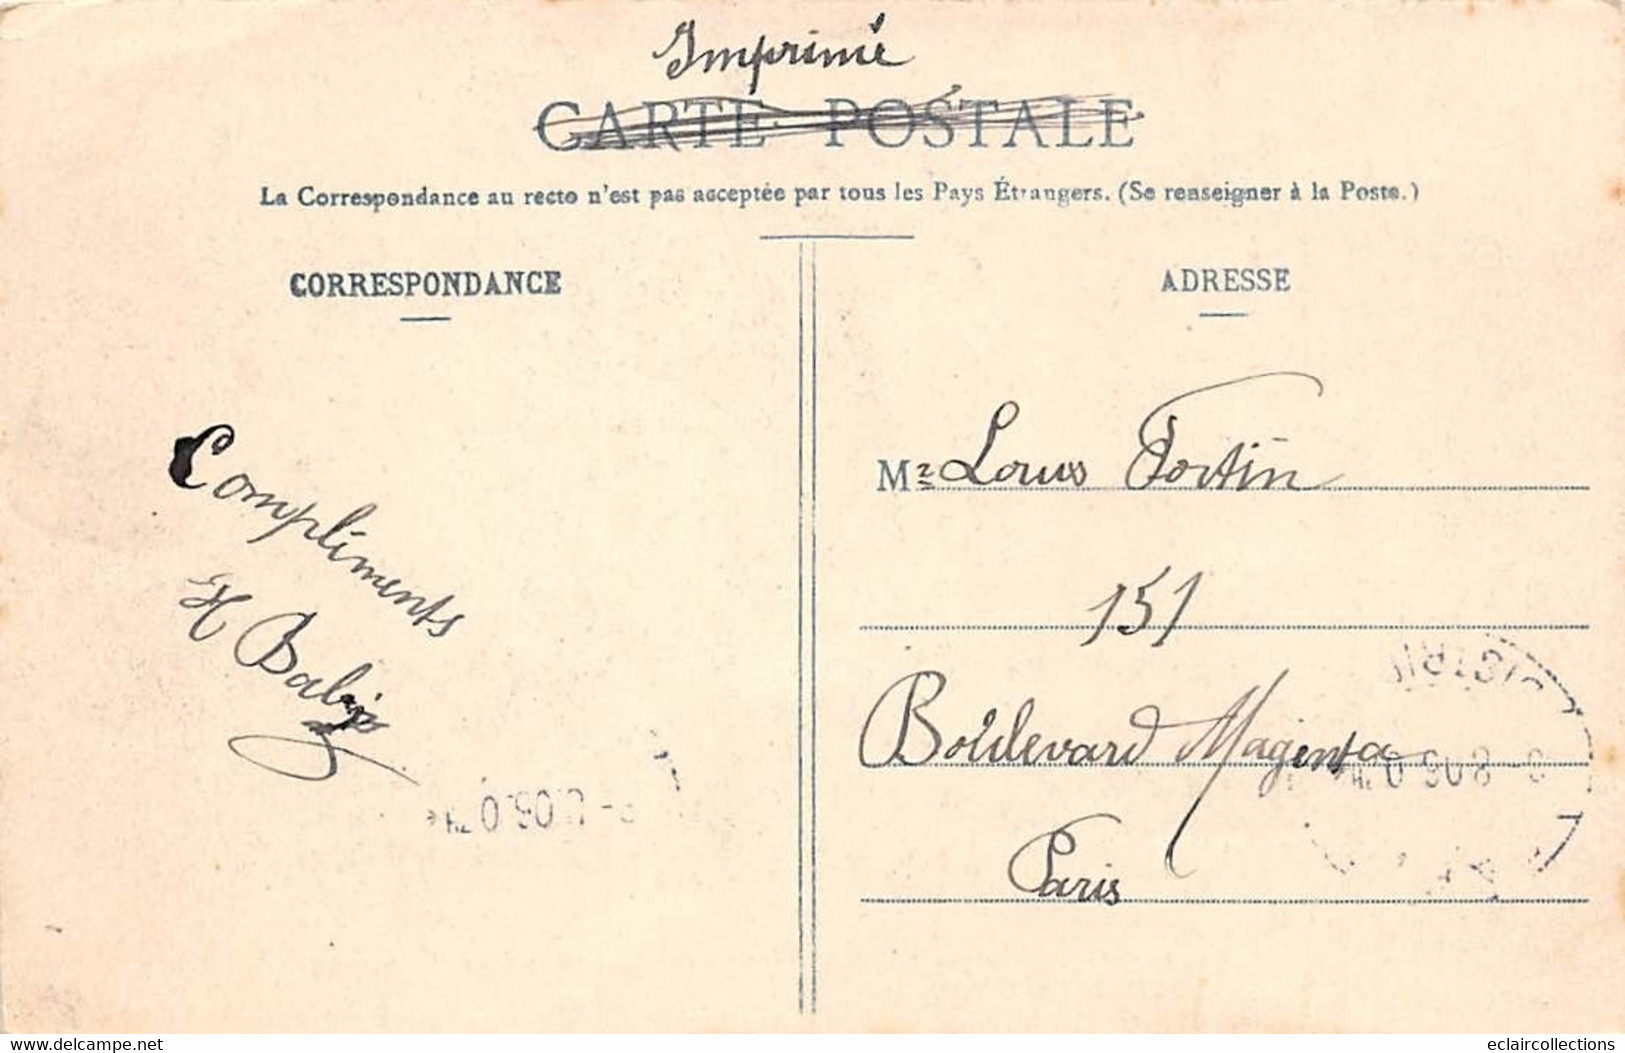 Imprimé
CARTE POSTALE
La Correspondance au recto n'est pas acceptée par tous les Pays Étrangers. (Se renseigner à la Poste.)
CORRESPONDANCE
Compliments
H
ADRESSE
Mr Louis Fortin
151
Boulevard Magenta
Paris
www.delcampe.net
eclaircollections